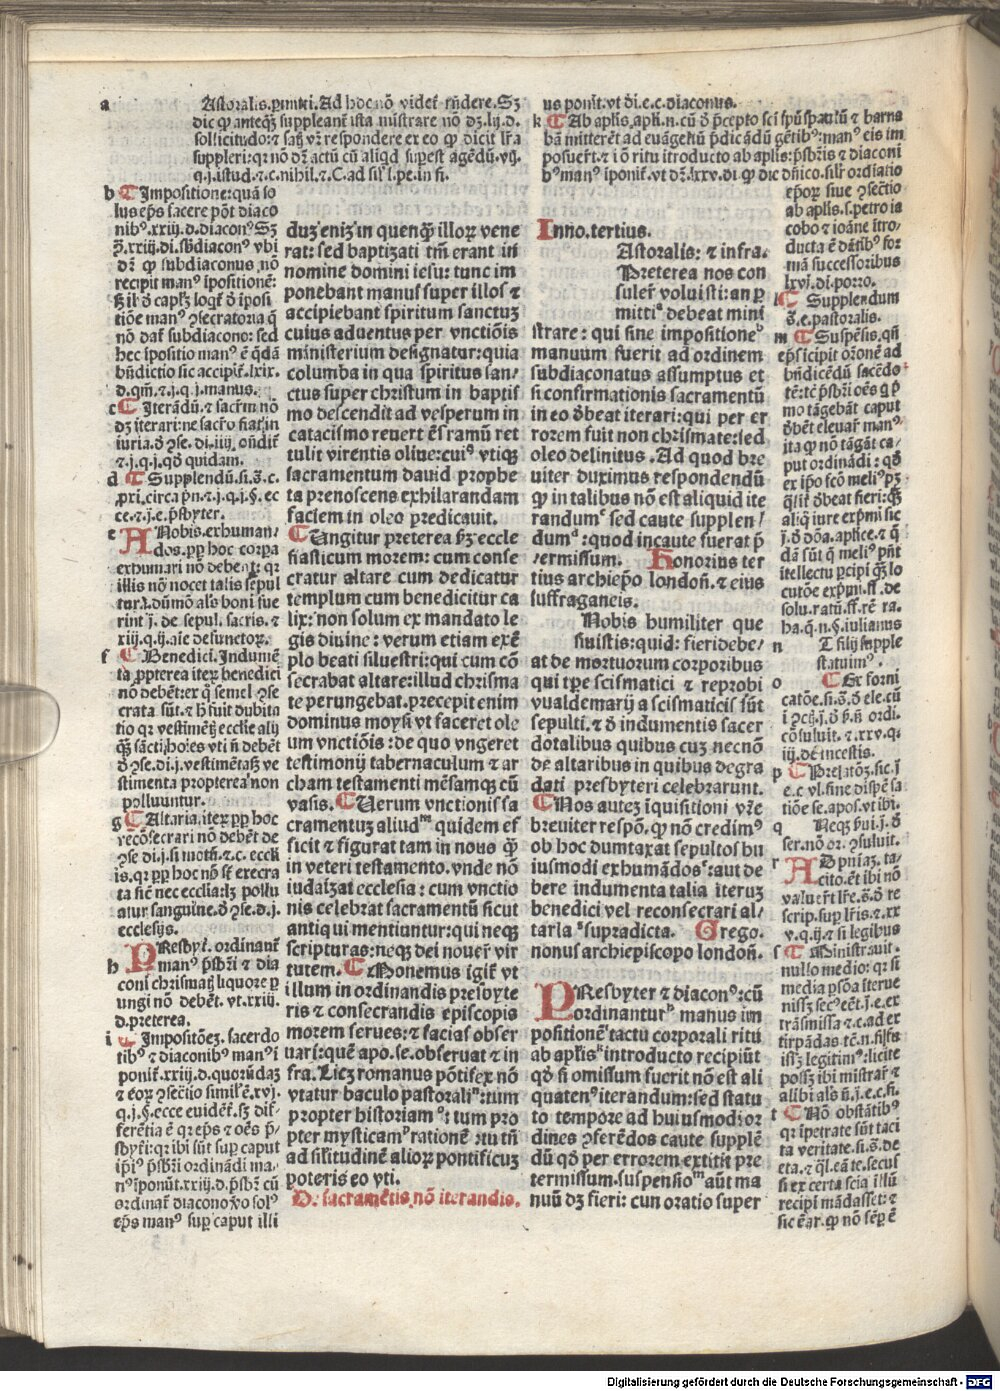 a Astoralis. pmitti. Ad hoc nō videt̄ rn̄dere. Sꝫ
dic ꝙ anteqꝫ suppleant̄ ista mistrare nō dꝫ. lij. d.
sollicitudo: ⁊ satꝭ vr̄ respondere ex eo ꝙ dicit lr̄a
suppleri: qr nō dr̄ actū cū aliqd supest agēdū. vij.
q. j. istud. ⁊ c. nihil. ⁊ C. ad sil' l. pe. in fi.
b ¶ Impositione: quā so
lus ep̄s facere pōt diaco
nibꝰ. xxiij. d. diaconꝰ Sꝫ
ꝯ̄. xxiij. di. sb̄diaconꝰ vbi
dr̄ ꝙ subdiaconus nō
recipit manꝰ īpositionē:
tiōe manꝰ ꝯsecratoria q̄
nō dat̄ subdiacono: sed
hec īpositio manꝰ ē q̄dā
bn̄dictio sic accipit̄. lxix.
d. qm̄. ⁊. j. q. j. manus.
c ¶ Iterādū. ⁊ sacrm̄ nō
dꝫ iterari: ne sacro fiat in
iuria. d̄ ꝯse. di. iiij. ondit̄
⁊. j. q. j. qd̄ quidam.
d ¶ Supplendū. s. ꝯ̄. c.
pxi. circa pn̄. ⁊. j. q. j. §. ec
ce. ⁊. j. e. p̄sbyter.
e ANobis. exhuman/
dos. ꝓp hoc corpa
exhumari nō debent: qr
illis nō nocet talis sepul
tura. dūmō als boni fue
rint j. de sepul. sacris. ⁊
xiij. q. ij. aīe defunctoꝝ.
f ¶ Benedici. Indumē
ta ꝓpterea iteꝝ benedici
nō debēt: ex q̄ semel ꝯse
crata sūt. ⁊ h̄ fuit dubita
tio qr vestimētꝭ ecclie alij
qꝫ sācti hoīes vti n̄ debēt
d̄ ꝯse. di. j. vestimētaꝫ ve
stimenta propterea non
polluuntur.
g ¶ Altaria. iteꝝ ꝓp hoc
recōsecrari nō debēt de
ꝯse. di. j. si motū. ⁊. c. eccli
is. qr ꝓp hoc nō st̄ execra
ta sic nec ecclia: lꝫ pollu
atur sanguine. d̄ ꝯse. d. j.
ecclesijs.
h PResbyt̄. ordinant̄
manꝰ p̄sbr̄i ⁊ dia
coni chrismatꝭ liquore ꝑ
ungi nō debēt. vt. xxiij.
d. preterea.
i ¶ Impositōeꝫ. sacerdo
tibꝰ ⁊ diaconibꝰ manꝰ ī
ponit̄. xxiij. d. quorūdaꝫ
⁊ eoꝝ ꝯsectio simil' ē. xvj.
q. j. §. ecce euidēt̄. sꝫ dif
ferētia ē qr ep̄s ⁊ oēs p̄
sbyt̄i: qr ibi sūt sup caput
ip̄iꝰ p̄sbr̄i ordinādi ma/
nꝰ īponūt. xxiij. d. p̄sbr̄ cū
ordinat̄ diacono vo solꝰ
ep̄s manꝰ sup caput illi
duꝫ eniꝫ in quenqꝫ illoꝝ vene
rat: sed baptizati tm̄ erant in
nomine domini iesu: tunc im
ponebant manus super illos ⁊
accipiebant spiritum sanctuꝫ
cuius aduentus per vnctiōis
ministerium designatur: quia
columba in qua spiritus san/
ctus super christum in baptis
mo descendit ad vesperum in
cataclismo reuert ēs ramū ret
tulit virentis oliue: cuiꝰ vtiqꝫ
sacramentum dauid prophe
ta prenoscens exhilarandam
faciem in oleo predicauit.
¶ Ungitur preterea ẜꝫ eccle
siasticum morem: cum conse
cratur altare cum dedicatur
templum cum benedicitur ca
lix: non solum ex mandato le
gis diuine: verum etiam exē
plo beati siluestri: qui cum cō
secrabat altare: illud chrisma
te perungebat. precepit enim
dominus moysi vt faceret ole
um vnctiōis: de quo vngeret
testimonij tabernaculum ⁊ ar
cham testamenti mēsamqꝫ cū
vasis. ¶ Uerum vnctionis sa
cramentuꝫ aliud quidem ef
ficit ⁊ figurat tam in nouo ꝙ̄
in veteri testamento. vnde nō
iudaiꝫat ecclesia: cum vnctio
nis celebrat sacramentū sicut
antiqui mentiuntur: qui neqꝫ
scripturas: neqꝫ dei nouer̄ vir
tutem. ¶ Monemus igit̄ vt
illum in ordinandis presbyte
ris ⁊ consecrandis episcopis
morem serues: ⁊ facias obser
uari: quē apo. se. obseruat ⁊ in
fra. Licꝫ romanus pōtifex nō
vtatur baculo pastorali: tum
propter historiam: tum pro
pter mysticam rationē: tu tn̄
ad similitudinē alioꝝ pontificuꝫ
poteris eo vti.
D. sacramētis nō iterandis.
us ponit. vt d̄i. e. c. diaconus.
k ¶ Ab apl̄is. apl̄i. n. cū d̄ p̄cepto sci sp̄ūs paulū ⁊ barna
bā mitterēt ad euāgeliū p̄dicādū gētibꝰ: manꝰ eis im
posuert. ⁊ iō ritu itroducto ab apl̄is: p̄sbr̄is ⁊ diaconi
bꝰ manꝰ iponit̄. vt dr̄. lxxv. di. ꝙ dic dn̄ico. silr̄ ordiatio
ep̄oꝝ siue ꝯsectio
ab apl̄is. s. petro ia
cobo ⁊ ioāne itro/
ducta ē dātibꝰ for
mā successoribus
lxvj. di. porro.
l ¶ Supplendum
ꝯ̄. e. pastoralis.
m ¶ Suspēsis. qn̄
ep̄s icipit or̄onē ad
bn̄dicēdū sacēdo
tē: tc̄ p̄sbr̄i oēs q̄ p̄
mo tāgebāt caput
dn̄t eleuar̄ manꝰ
ita ꝙ nō tāgāt ca/
put ordinādi: qd̄
ex ip̄o sco meliꝰ pꝫ
qlit̄ d̄beat fieri: qꝫ
aliqꝫ iure exp̄mi sic
j. d̄ dōa. aplice. ⁊ q̄
dā sūt q̄ meliꝰ pn̄t
itellectu ꝑcipi qꝫ lo
cutōe exp̄mi. ff. de
solu. ratū. ff. rē ra.
ha. q. n. §. iulianus
n ¶ filij supple
statuimꝰ.
o ¶ Ex forni
catōe. s. ꝯ̄. d̄ ele. cū
cōsuluit. ⁊. xxv. q.
iij. de incestis.
p ¶ Prelatōꝫ. sic. j.
e. c. vl. sine dispē sa
tiōe se. apos. vt ibi.
q Neqꝫ p̄ui. j. d̄
ser. nō or. ꝯsuluit.
r AD pn̄iaꝫ. ta/
cito. et ibi nō
valuert lr̄e. s. d̄ re
scrip. sup lr̄is. ⁊. xx
v. q. ij. ⁊ si legibus
s ¶ Ministrauit.
nullo medio: qr si
media psōa iterue
nissꝫ secꝰ eēt. j. e. ex
trāsmissa ⁊ c. ad ex
tirpādas. tn̄. n. filiꝰ
issꝫ legitimꝰ: licite
possꝫ ibi mistrar̄ ⁊
alibi als n̄. j. e. c. fi.
t ¶ Nō obstātibꝰ
qr ipetrate sūt taci
ta veritate. s. ꝯ̄. de
eta. ⁊ ql. eā te. secus
si ex certa scia illū
recipi mādasset: ⁊
sic ē ar. ꝙ nō sēp ē
Inno. tertius.
Astoralis: ⁊ infra.
Preterea nos con
suler̄ voluisti: an p
mitti debeat mini
strare: qui sine impositione
manuum fuerit ad ordinem
subdiaconatus assumptus et
si confirmationis sacramentū
in eo d̄beat iterari: qui per er
rorem fuit non chrismate: sed
oleo delinitus. Ad quod bre
uiter duximus respondendū
ꝙ in talibus nō est aliquid ite
randum sed caute supplen/
dum: quod incaute fuerat p̄
termissum. Honorius ter
tius archiep̄o londoñ. ⁊ eius
suffraganeis.
Nobis humiliter que
siuistis: quid: fieri debe/
at de mortuorum corporibus
qui tp̄e scismatici ⁊ reprobi
vualdemarij a scismaticis sūt
sepulti. ⁊ d̄ indumentis sacer
dotalibus quibus cuꝫ necnō
de altaribus in quibus degra
dati presbyteri celebrarunt.
¶ Nos auteꝫ iquisitioni vr̄e
breuiter respō. ꝙ nō credimꝰ
ob hoc dumtaxat sepultos hu
iusmodi exhumādos: aut de
bere indumenta talia iteruꝫ
benedici vel reconsecrari al/
taria supradicta. Grego.
nonus archiepiscopo londoñ.
PResbyter ⁊ diaconꝰ: cū
ordinantur manus im
positionē tactu corporali ritu
ab apl̄is introducto recipiūt
qd̄ si omissum fuerit nō est ali
quatenꝰ iterandum: sed statu
to tempore ad huiusmodi or
dines ꝯferēdos caute supplē
dū qd̄ per errorem extitit pre
termissum. suspensio aūt ma
nuū dꝫ fieri: cun oratio super
Digitalisierung gefördert durch die Deutsche Forschungsgemeinschaft - DFG